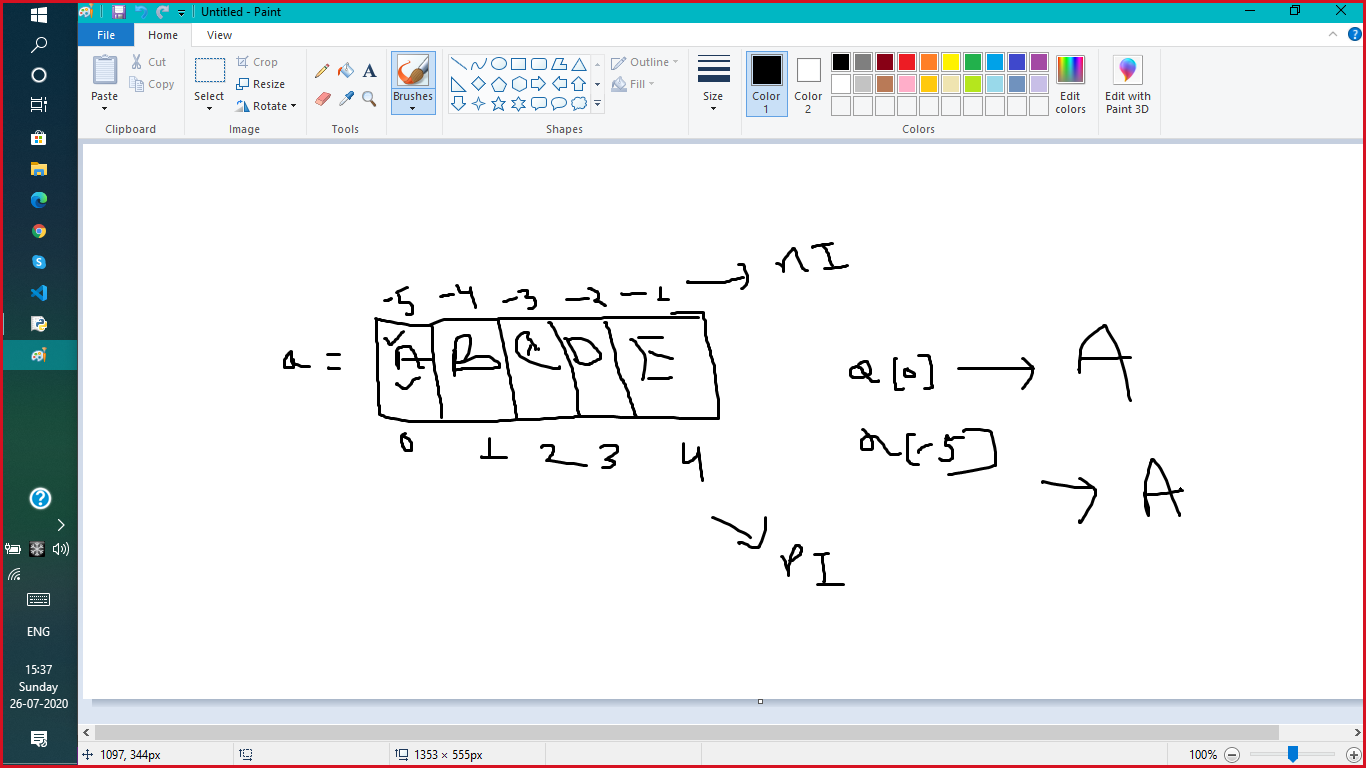 Untitled - Paint
File Home View
Paste Cut Copy Clipboard
Select Crop Resize Rotate Image
A Tools
Brushes
Outline Fill Shapes
Size
Color 1 Color 2 Edit colors Colors
Edit with Paint 3D
-5 -4 -3 -2 -1 → nI
a = A B C D E
0 1 2 3 4
→ PI
a[0] → A
a[-5] → A
ENG
15:37
Sunday
26-07-2020
1097, 344px 1353 × 555px 100%